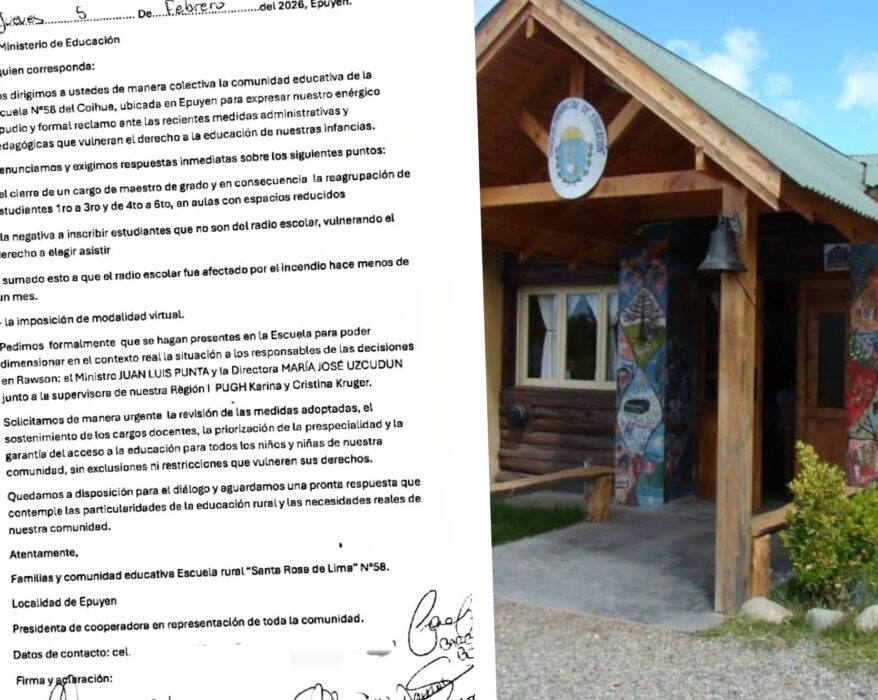 Jueves 5 De Febrero del 2026, Epuyen.
Ministerio de Educación
quien corresponda:
os dirigimos a ustedes de manera colectiva la comunidad educativa de la
scuela N°58 del Coihue, ubicada en Epuyen para expresar nuestro enérgico
pudio y formal reclamo ante las recientes medidas administrativas y
edagógicas que vulneran el derecho a la educación de nuestras infancias.
enunciamos y exigimos respuestas inmediatas sobre los siguientes puntos:
el cierre de un cargo de maestro de grado y en consecuencia la reagrupación de
studiantes 1ro a 3ro y de 4to a 6to, en aulas con espacios reducidos
la negativa a inscribir estudiantes que no son del radio escolar, vulnerando el
erecho a elegir asistir
sumado esto a que el radio escolar fue afectado por el incendio hace menos de
un mes.
- la imposición de modalidad virtual.
Pedimos formalmente que se hagan presentes en la Escuela para poder
dimensionar en el contexto real la situación a los responsables de las decisiones
en Rawson: el Ministro JUAN LUIS PUNTA y la Directora MARÍA JOSÉ UZCUDUN
junto a la supervisora de nuestra Règión I PUGH Karina y Cristina Kruger.
Solicitamos de manera urgente la revisión de las medidas adoptadas, el
sostenimiento de los cargos docentes, la priorización de la prespecialidad y la
garantía del acceso a la educación para todos los niños y niñas de nuestra
comunidad, sin exclusiones ni restricciones que vulneren sus derechos.
Quedamos a disposición para el diálogo y aguardamos una pronta respuesta que
contemple las particularidades de la educación rural y las necesidades reales de
nuestra comunidad.
Atentamente,
Familias y comunidad educativa Escuela rural "Santa Rosa de Lima" N°58.
Localidad de Epuyen
Presidenta de cooperadora en representación de toda la comunidad.
Datos de contacto: cel.
Firma y aclaración:
CONSEJO PROVINCIAL DE EDUCACION